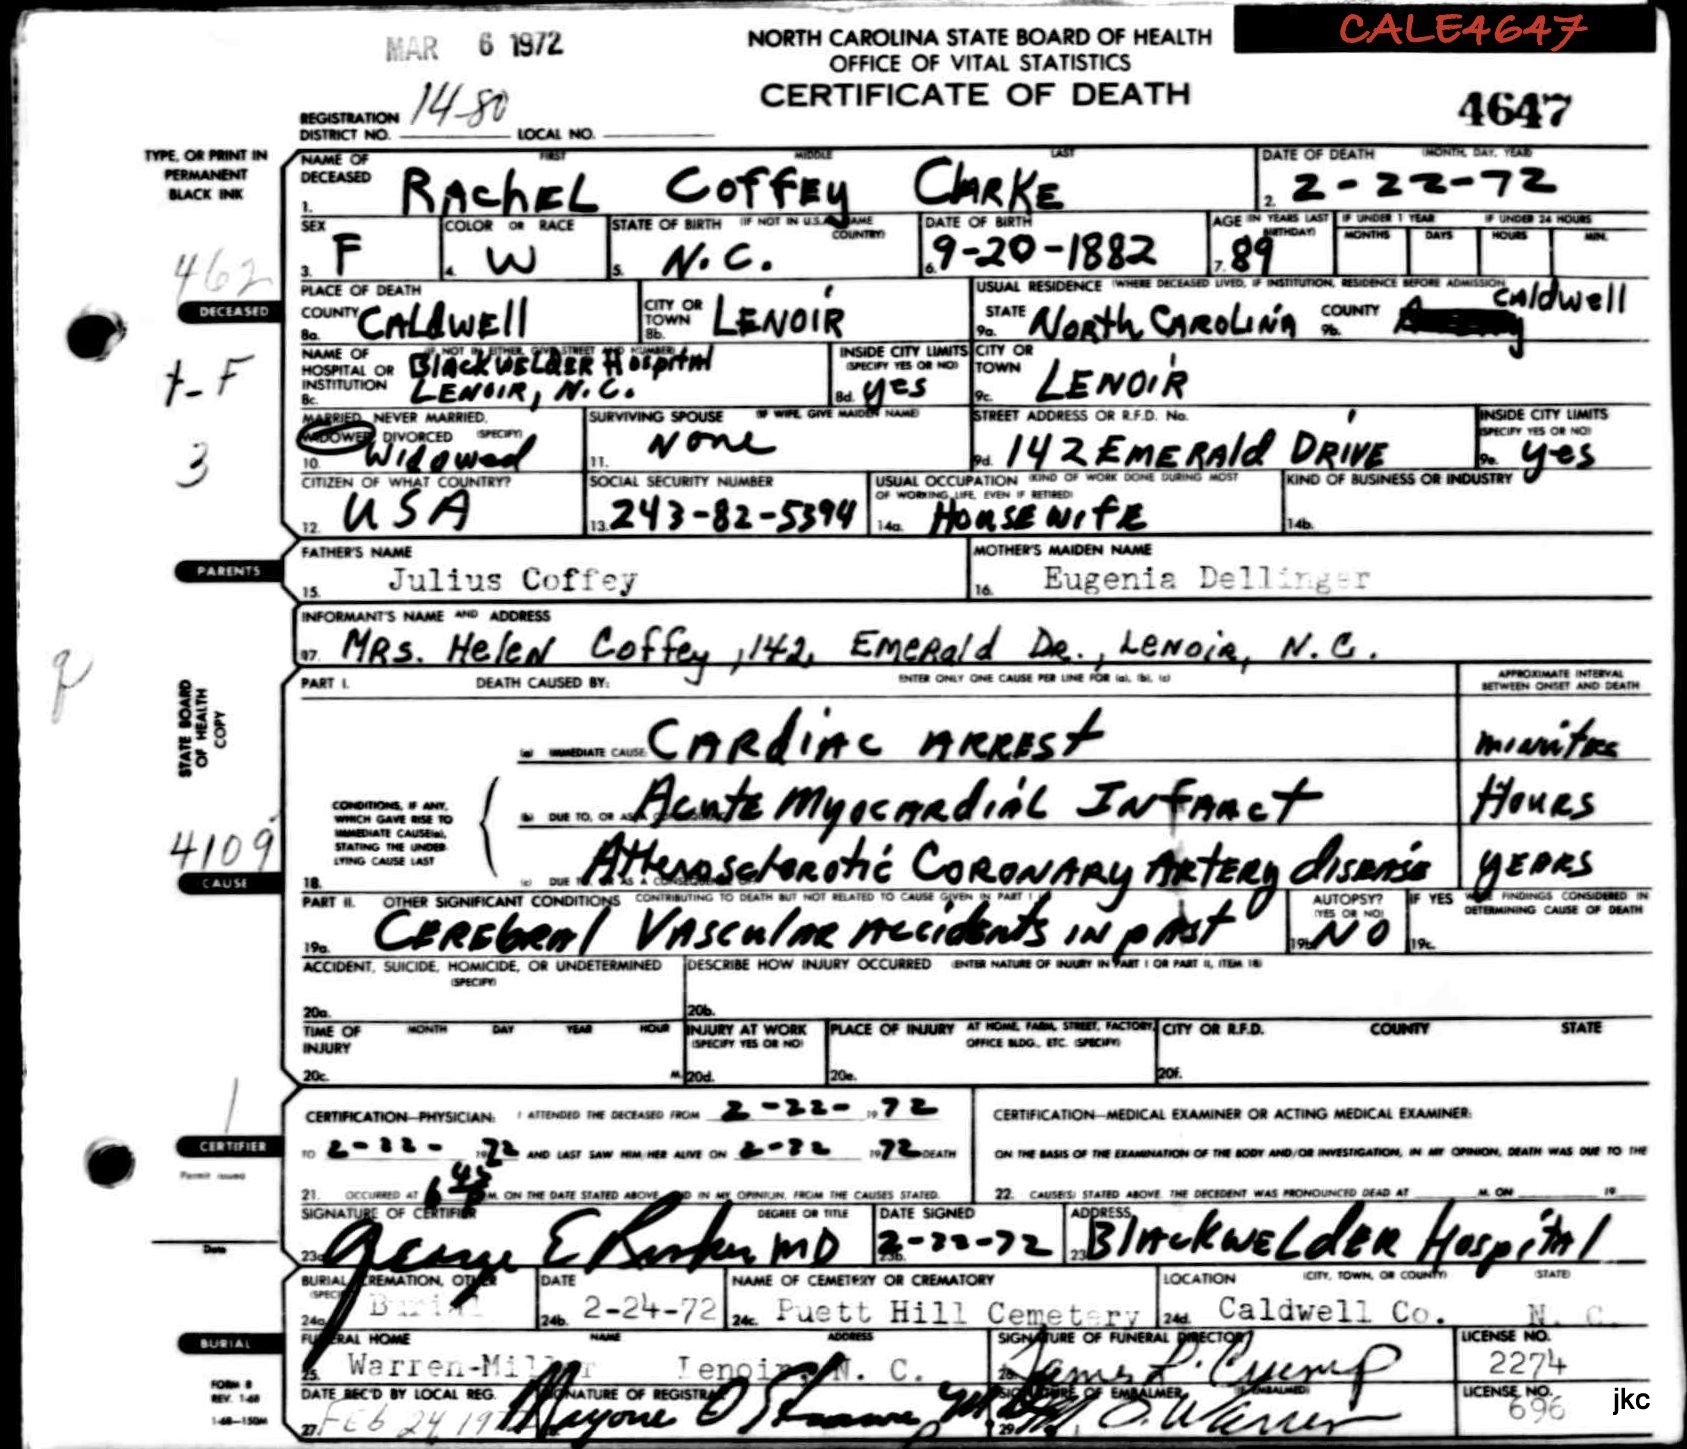 CALE4647
MAR 6 1972
NORTH CAROLINA STATE BOARD OF HEALTH
OFFICE OF VITAL STATISTICS
CERTIFICATE OF DEATH
4647
REGISTRATION DISTRICT NO. 14-80 LOCAL NO.
TYPE, OR PRINT IN
PERMANENT
BLACK INK
NAME OF DECEASED FIRST MIDDLE LAST
1. RACHEL COFFEY CLARKE
DATE OF DEATH (MONTH, DAY, YEAR)
2. 2-22-72
SEX 3. F
COLOR OR RACE 4. W
STATE OF BIRTH (IF NOT IN U.S.A. NAME COUNTRY) 5. N.C.
DATE OF BIRTH 6. 9-20-1882
AGE (IN YEARS LAST BIRTHDAY) 7. 89
IF UNDER 1 YEAR MONTHS DAYS
IF UNDER 24 HOURS HOURS MIN.
462
DECEASED
PLACE OF DEATH
COUNTY 8a. CALDWELL
CITY OR TOWN 8b. LENOIR
USUAL RESIDENCE (WHERE DECEASED LIVED, IF INSTITUTION, RESIDENCE BEFORE ADMISSION)
STATE 9a. NORTH CAROLINA COUNTY 9b. CALDWELL
NAME OF HOSPITAL OR INSTITUTION (IF NOT IN EITHER, GIVE STREET AND NUMBER)
8c. BLACKWELDER HOSPITAL
LENOIR, N.C.
INSIDE CITY LIMITS (SPECIFY YES OR NO) 8d. yes
CITY OR TOWN 9c. LENOIR
F
3
MARRIED, NEVER MARRIED, WIDOWED, DIVORCED (SPECIFY)
10. Widowed
SURVIVING SPOUSE (IF WIFE, GIVE MAIDEN NAME) 11. None
STREET ADDRESS OR R.F.D. No. 9d. 142 EMERALD DRIVE
INSIDE CITY LIMITS (SPECIFY YES OR NO) 9e. yes
CITIZEN OF WHAT COUNTRY? 12. USA
SOCIAL SECURITY NUMBER 13. 243-82-5394
USUAL OCCUPATION (KIND OF WORK DONE DURING MOST OF WORKING LIFE, EVEN IF RETIRED) 14a. HOUSEWIFE
KIND OF BUSINESS OR INDUSTRY 14b.
PARENTS
FATHER'S NAME 15. Julius Coffey
MOTHER'S MAIDEN NAME 16. Eugenia Dellinger
INFORMANT'S NAME AND ADDRESS
17. MRS. HELEN COFFEY, 142, EMERALD DR., LENOIR, N.C.
STATE BOARD
OF HEALTH
COPY
PART I. DEATH CAUSED BY: ENTER ONLY ONE CAUSE PER LINE FOR (a), (b), (c)
APPROXIMATE INTERVAL BETWEEN ONSET AND DEATH
(a) IMMEDIATE CAUSE: CARDIAC ARREST minutes
CONDITIONS, IF ANY,
WHICH GAVE RISE TO
IMMEDIATE CAUSE(a),
STATING THE UNDER-
LYING CAUSE LAST
(b) DUE TO, OR AS A CONSEQUENCE OF: Acute Myocardial Infarct HOURS
(c) DUE TO, OR AS A CONSEQUENCE OF: Atherosclerotic CORONARY ARTERY disease YEARS
18.
4109
CAUSE
PART II. OTHER SIGNIFICANT CONDITIONS CONTRIBUTING TO DEATH BUT NOT RELATED TO CAUSE GIVEN IN PART I
19a. CEREBRAL VASCULAR ACCIDENTS IN PAST
AUTOPSY? (YES OR NO) 19b. NO
IF YES WERE FINDINGS CONSIDERED IN DETERMINING CAUSE OF DEATH 19c.
ACCIDENT, SUICIDE, HOMICIDE, OR UNDETERMINED (SPECIFY) 20a.
DESCRIBE HOW INJURY OCCURRED (ENTER NATURE OF INJURY IN PART I OR PART II, ITEM 18) 20b.
TIME OF INJURY MONTH DAY YEAR HOUR 20c. M.
INJURY AT WORK (SPECIFY YES OR NO) 20d.
PLACE OF INJURY AT HOME, FARM, STREET, FACTORY, OFFICE BLDG., ETC. (SPECIFY) 20e.
CITY OR R.F.D. COUNTY STATE 20f.
CERTIFIER
Permit issued
Date
CERTIFICATION—PHYSICIAN: I ATTENDED THE DECEASED FROM 2-22- 19 72
TO 2-22- 1972 AND LAST SAW HIM/HER ALIVE ON 2-22 1972 DEATH
21. OCCURRED AT 6 45 M. ON THE DATE STATED ABOVE, AND IN MY OPINION, FROM THE CAUSES STATED.
CERTIFICATION—MEDICAL EXAMINER OR ACTING MEDICAL EXAMINER:
ON THE BASIS OF THE EXAMINATION OF THE BODY AND/OR INVESTIGATION, IN MY OPINION, DEATH WAS DUE TO THE
22. CAUSE(S) STATED ABOVE. THE DECEDENT WAS PRONOUNCED DEAD AT M. ON 19
SIGNATURE OF CERTIFIER DEGREE OR TITLE
23a. George E MD
DATE SIGNED 23b. 2-22-72
ADDRESS 23 BLACKWELDER Hospital
BURIAL, CREMATION, OTHER (SPECIFY) 24a. Burial
DATE 24b. 2-24-72
NAME OF CEMETERY OR CREMATORY 24c. Puett Hill Cemetery
LOCATION (CITY, TOWN, OR COUNTY) (STATE) 24d. Caldwell Co. N. C.
BURIAL
FUNERAL HOME NAME ADDRESS
25. Warren-Miller Lenoir, N. C.
SIGNATURE OF FUNERAL DIRECTOR
26. James L. Crump
LICENSE NO. 2274
FORM 8
REV. 1-68
1-68—150M
DATE REC'D BY LOCAL REG. 27. FEB 24 197
SIGNATURE OF REGISTRAR
SIGNATURE OF EMBALMER (IF EMBALMED)
29. Warren
LICENSE NO. 696
jkc